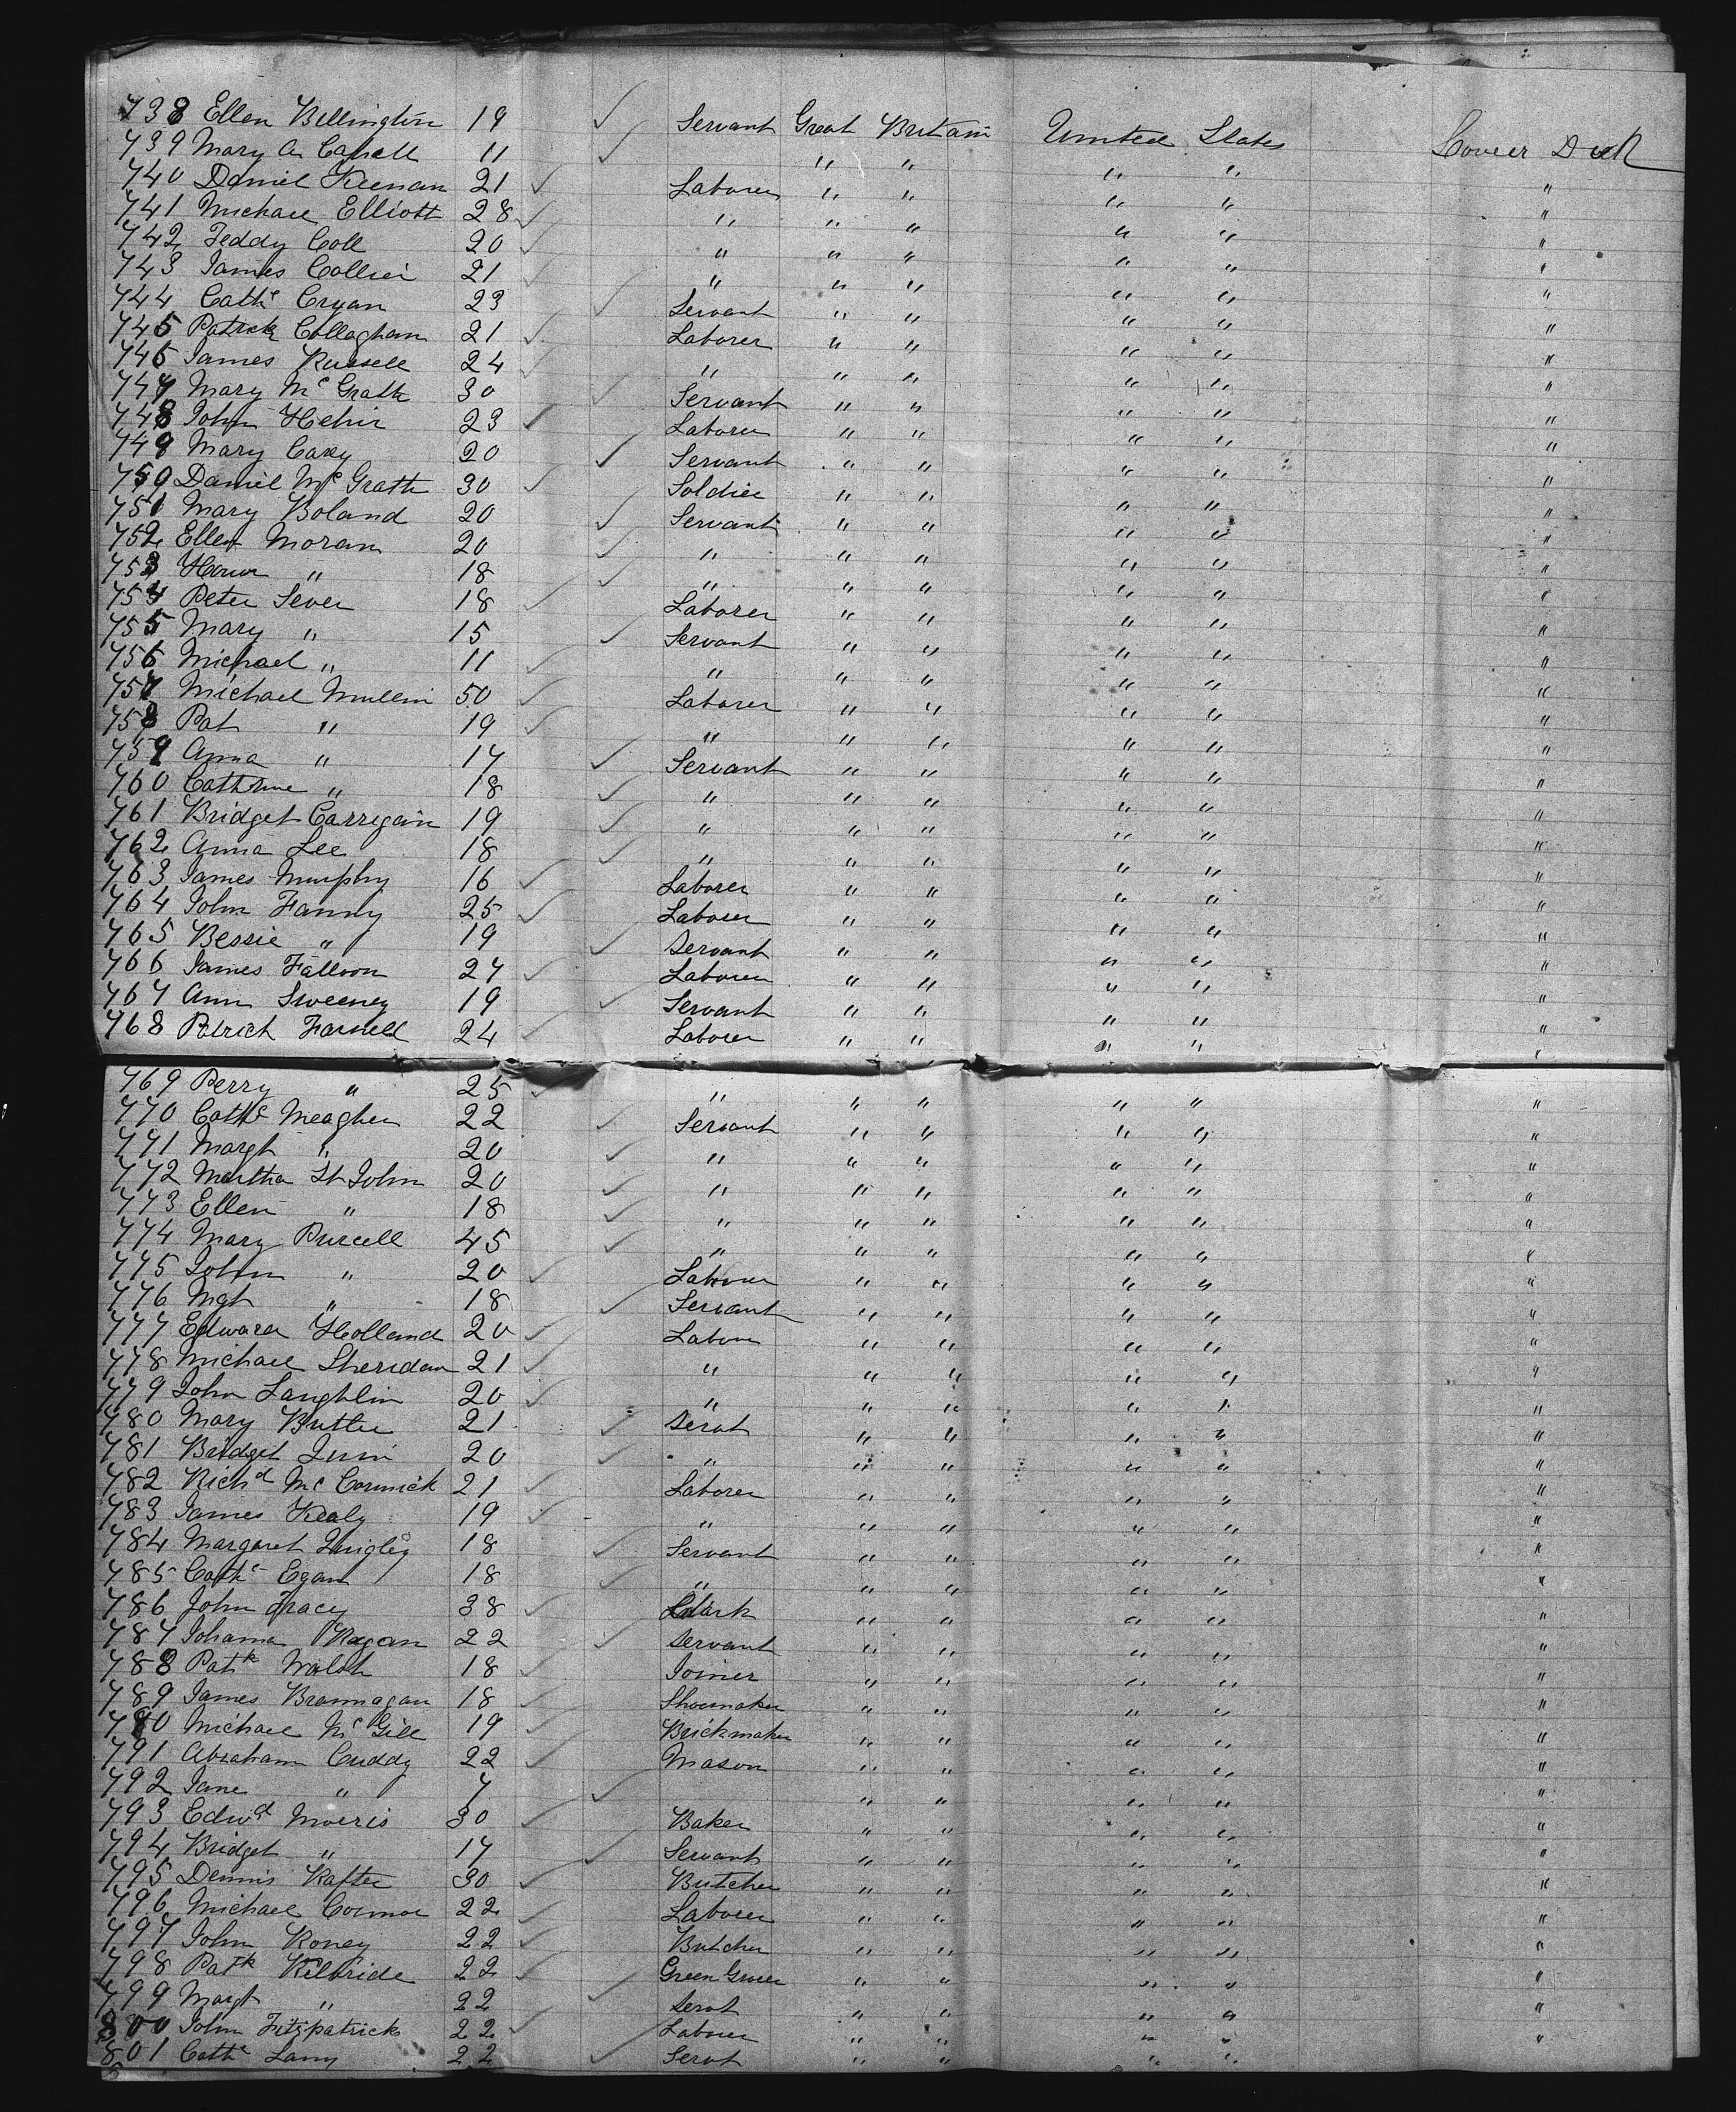 738 Ellen Billington 19 ✓ Servant Great Britain United States Lower Deck
739 Mary A Cahill 11 ✓ " " " "
740 Daniel Keenan 21 ✓ Laborer " " " " "
741 Michael Elliott 28 ✓ " " " " " "
742 Teddy Coll 20 ✓ " " " " " "
743 James Collier 21 ✓ " " " " " "
744 Cathe Cryan 23 ✓ Servant " " " " "
745 Patrick Collaghan 21 ✓ Laborer " " " " "
746 James Russell 24 ✓ " " " " " "
747 Mary McGrath 30 ✓ Servant " " " " "
748 John Hehir 23 ✓ Laborer " " " " "
749 Mary Casey 20 ✓ Servant " " " " "
750 Daniel McGrath 30 ✓ Soldier " " " " "
751 Mary Boland 20 ✓ Servant " " " " "
752 Ellen Moran 20 ✓ " " " " " "
753 " 18 ✓ " " " " " "
754 Peter Sever 18 ✓ Laborer " " " " "
755 Mary " 15 ✓ Servant " " " " "
756 Michael " 11 ✓ " " " " " "
757 Michael Mullin 50 ✓ Laborer " " " " "
758 Pat " 19 ✓ " " " " " "
759 Anna " 17 ✓ Servant " " " " "
760 Cathrine " 18 ✓ " " " " " "
761 Bridget Carrigain 19 ✓ " " " " " "
762 Anna Lee 18 ✓ " " " " " "
763 James Murphy 16 ✓ Laborer " " " " "
764 John Fanny 25 ✓ Laborer " " " " "
765 Bessie " 19 ✓ Servant " " " " "
766 James Falloon 27 ✓ Laborer " " " " "
767 Ann Sweeney 19 ✓ Servant " " " " "
768 Patrick Farnell 24 ✓ Laborer " " " " "
769 Perry " 25 ✓ " " " " " "
770 Cathe Meagher 22 ✓ Servant " " " " "
771 Margt " 20 ✓ " " " " " "
772 Martha St John 20 ✓ " " " " " "
773 Ellen " 18 ✓ " " " " " "
774 Mary Purcell 45 ✓ " " " " " "
775 John " 20 ✓ Laborer " " " " "
776 Mgt " 18 ✓ Servant " " " " "
777 Edward Holland 20 ✓ Labour " " " " "
778 Michael Sheridan 21 ✓ " " " " " "
779 John Laughlin 20 ✓ " " " " " "
780 Mary Butler 21 ✓ Servt " " " " "
781 Bridget Quin 20 ✓ " " " " " "
782 Richd McCormick 21 ✓ Laborer " " " " "
783 James Kealy 19 ✓ " " " " " "
784 Margaret Quigley 18 ✓ Servant " " " " "
785 Cathe Egan 18 ✓ " " " " " "
786 John Tracy 38 ✓ Clark " " " " "
787 Johanna Ragan 22 ✓ Servant " " " " "
788 Patk Walsh 18 ✓ Joiner " " " " "
789 James Brannagan 18 ✓ Shoemaker " " " " "
790 Michael McGill 19 ✓ Brickmaker " " " " "
791 Abraham Cuddy 22 ✓ Mason " " " " "
792 Jane " 7 ✓ " " " " "
793 Edwd Morris 30 ✓ Baker " " " " "
794 Bridget " 17 ✓ Servant " " " " "
795 Dennis Rafter 30 ✓ Butcher " " " " "
796 Michael Cormor 22 ✓ Laborer " " " " "
797 John Roney 22 ✓ Butcher " " " " "
798 Patk Kilbride 22 ✓ Green Grocer " " " " "
799 Margt " 22 ✓ Servt " " " " "
800 John Fitzpatrick 22 ✓ Laborer " " " " "
801 Cathe Lany 22 ✓ Servt " " " "